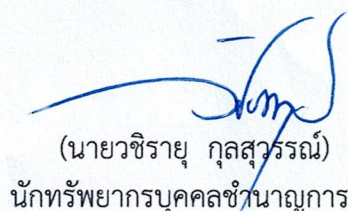 (นายวชิรายุ กุลสุวรรณ์)
นักทรัพยากรบุคคลชำนาญการ